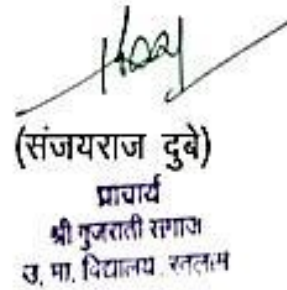 (संजयराज दुबे)
प्राचार्य
श्री गुजराती समाज
उ. मा. विद्यालय रतलाम